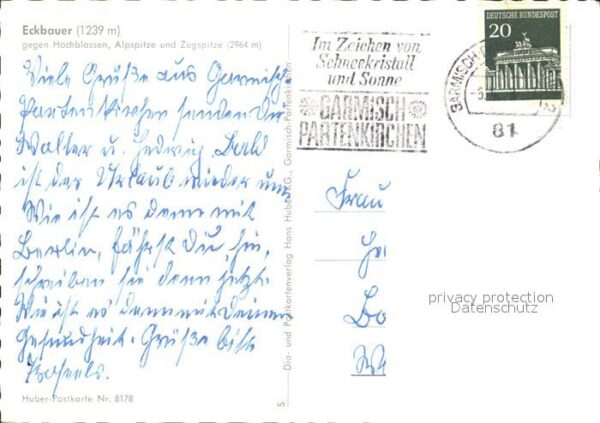 Eckbauer (1239 m)
gegen Hochblassen, Alpspitze und Zugspitze (2964 m)
Viele Grüße aus Garmisch
Partenkirchen senden Dir
Walter u. Hedwig. Bald
ist der Urlaub wieder um.
Wie ist es denn mit
Berlin, fährst Du hin,
schreiben sie denn jetzt.
Wie ist es denn mit Deiner
Gesundheit. Grüße bitte
Im Zeichen von
Schneekristall
und Sonne
GARMISCH
PARTENKIRCHEN
DEUTSCHE BUNDESPOST
20
GARMISCH-P
81
Frau
Bo
privacy protection
Datenschutz
S
Dia- und Postkartenverlag Hans Huber KG., Garmisch-Partenkirchen
Huber-Postkarte Nr. 8178